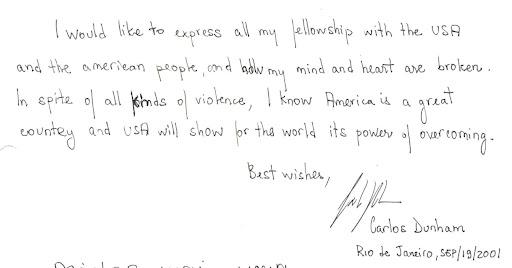 I would like to express all my fellowship with the USA
and the american people, and how my mind and heart are broken.
In spite of all kinds of violence, I know America is a great
country and USA will show for the world its power of overcoming.
Best wishes,
Carlos Dunham
Rio de Janeiro, SEP/19/2001